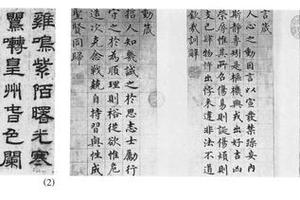 言箴
人心之動因言以宣發禁躁妄內
斯靜專矧是樞機興戎出好吉凶
榮辱惟其所召傷易則誕傷煩則
支己肆物忤出悖來違非法不道
欽哉訓辭
動箴
哲人知幾誠之於思志士勵行
守之於為順理則裕從欲惟危
造次克念戰兢自持習與性成
聖賢同歸
雞鳴紫陌曙光寒
鶯囀皇州春色闌
(2)